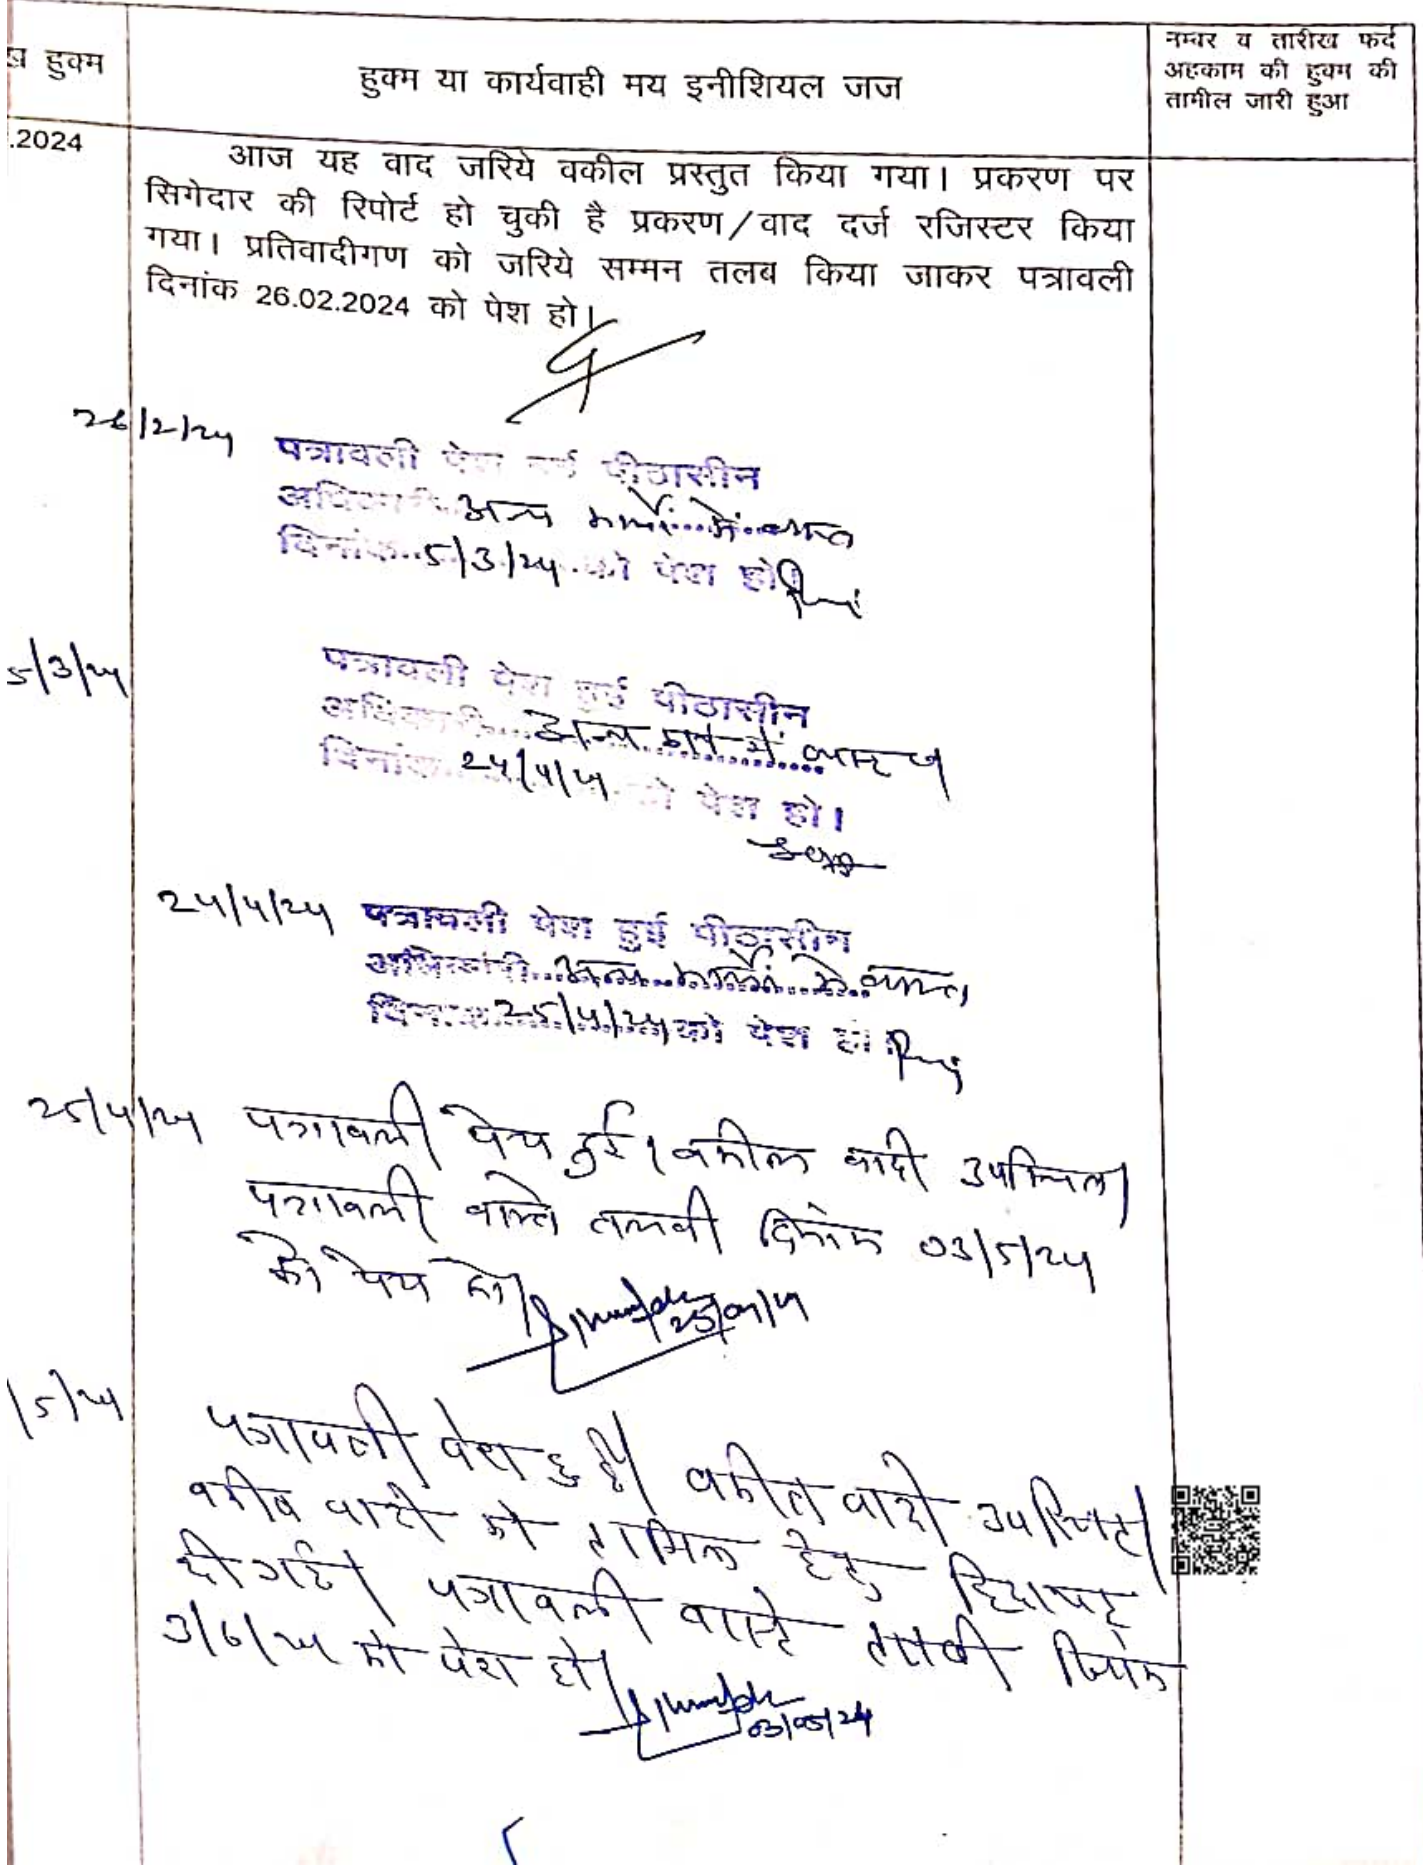 ख हुक्म
हुक्म या कार्यवाही मय इनीशियल जज
नम्बर व तारीख फर्द
अहकाम की हुक्म की
तामील जारी हुआ
.2024
आज यह वाद जरिये वकील प्रस्तुत किया गया। प्रकरण पर
सिगेदार की रिपोर्ट हो चुकी है प्रकरण/वाद दर्ज रजिस्टर किया
गया। प्रतिवादीगण को जरिये सम्मन तलब किया जाकर पत्रावली
दिनांक 26.02.2024 को पेश हो।
26/2/24 पत्रावली पेश हुई पीठासीन
अधिकारी अन्य कार्यों में व्यस्त
दिनांक 5/3/24 को पेश हो
5/3/24 पत्रावली पेश हुई पीठासीन
अधिकारी अन्य कार्य में व्यस्त
दिनांक 24/4/24 को पेश हो।
24/4/24 पत्रावली पेश हुई पीठासीन
अधिकारी अन्य कार्यों में व्यस्त
दिनांक 25/4/24 को पेश हो
25/4/24 पत्रावली पेश हुई। वकील वादी उपस्थित।
पत्रावली वास्ते तलबी दिनांक 03/5/24
को पेश हो।
25/04/24
/5/24 पत्रावली पेश हुई। वकील वादी उपस्थित।
वकील वादी को तामिल हेतु हिदायत
दी गई। पत्रावली वास्ते तलबी दिनांक
3/6/24 को पेश हो।
03/05/24